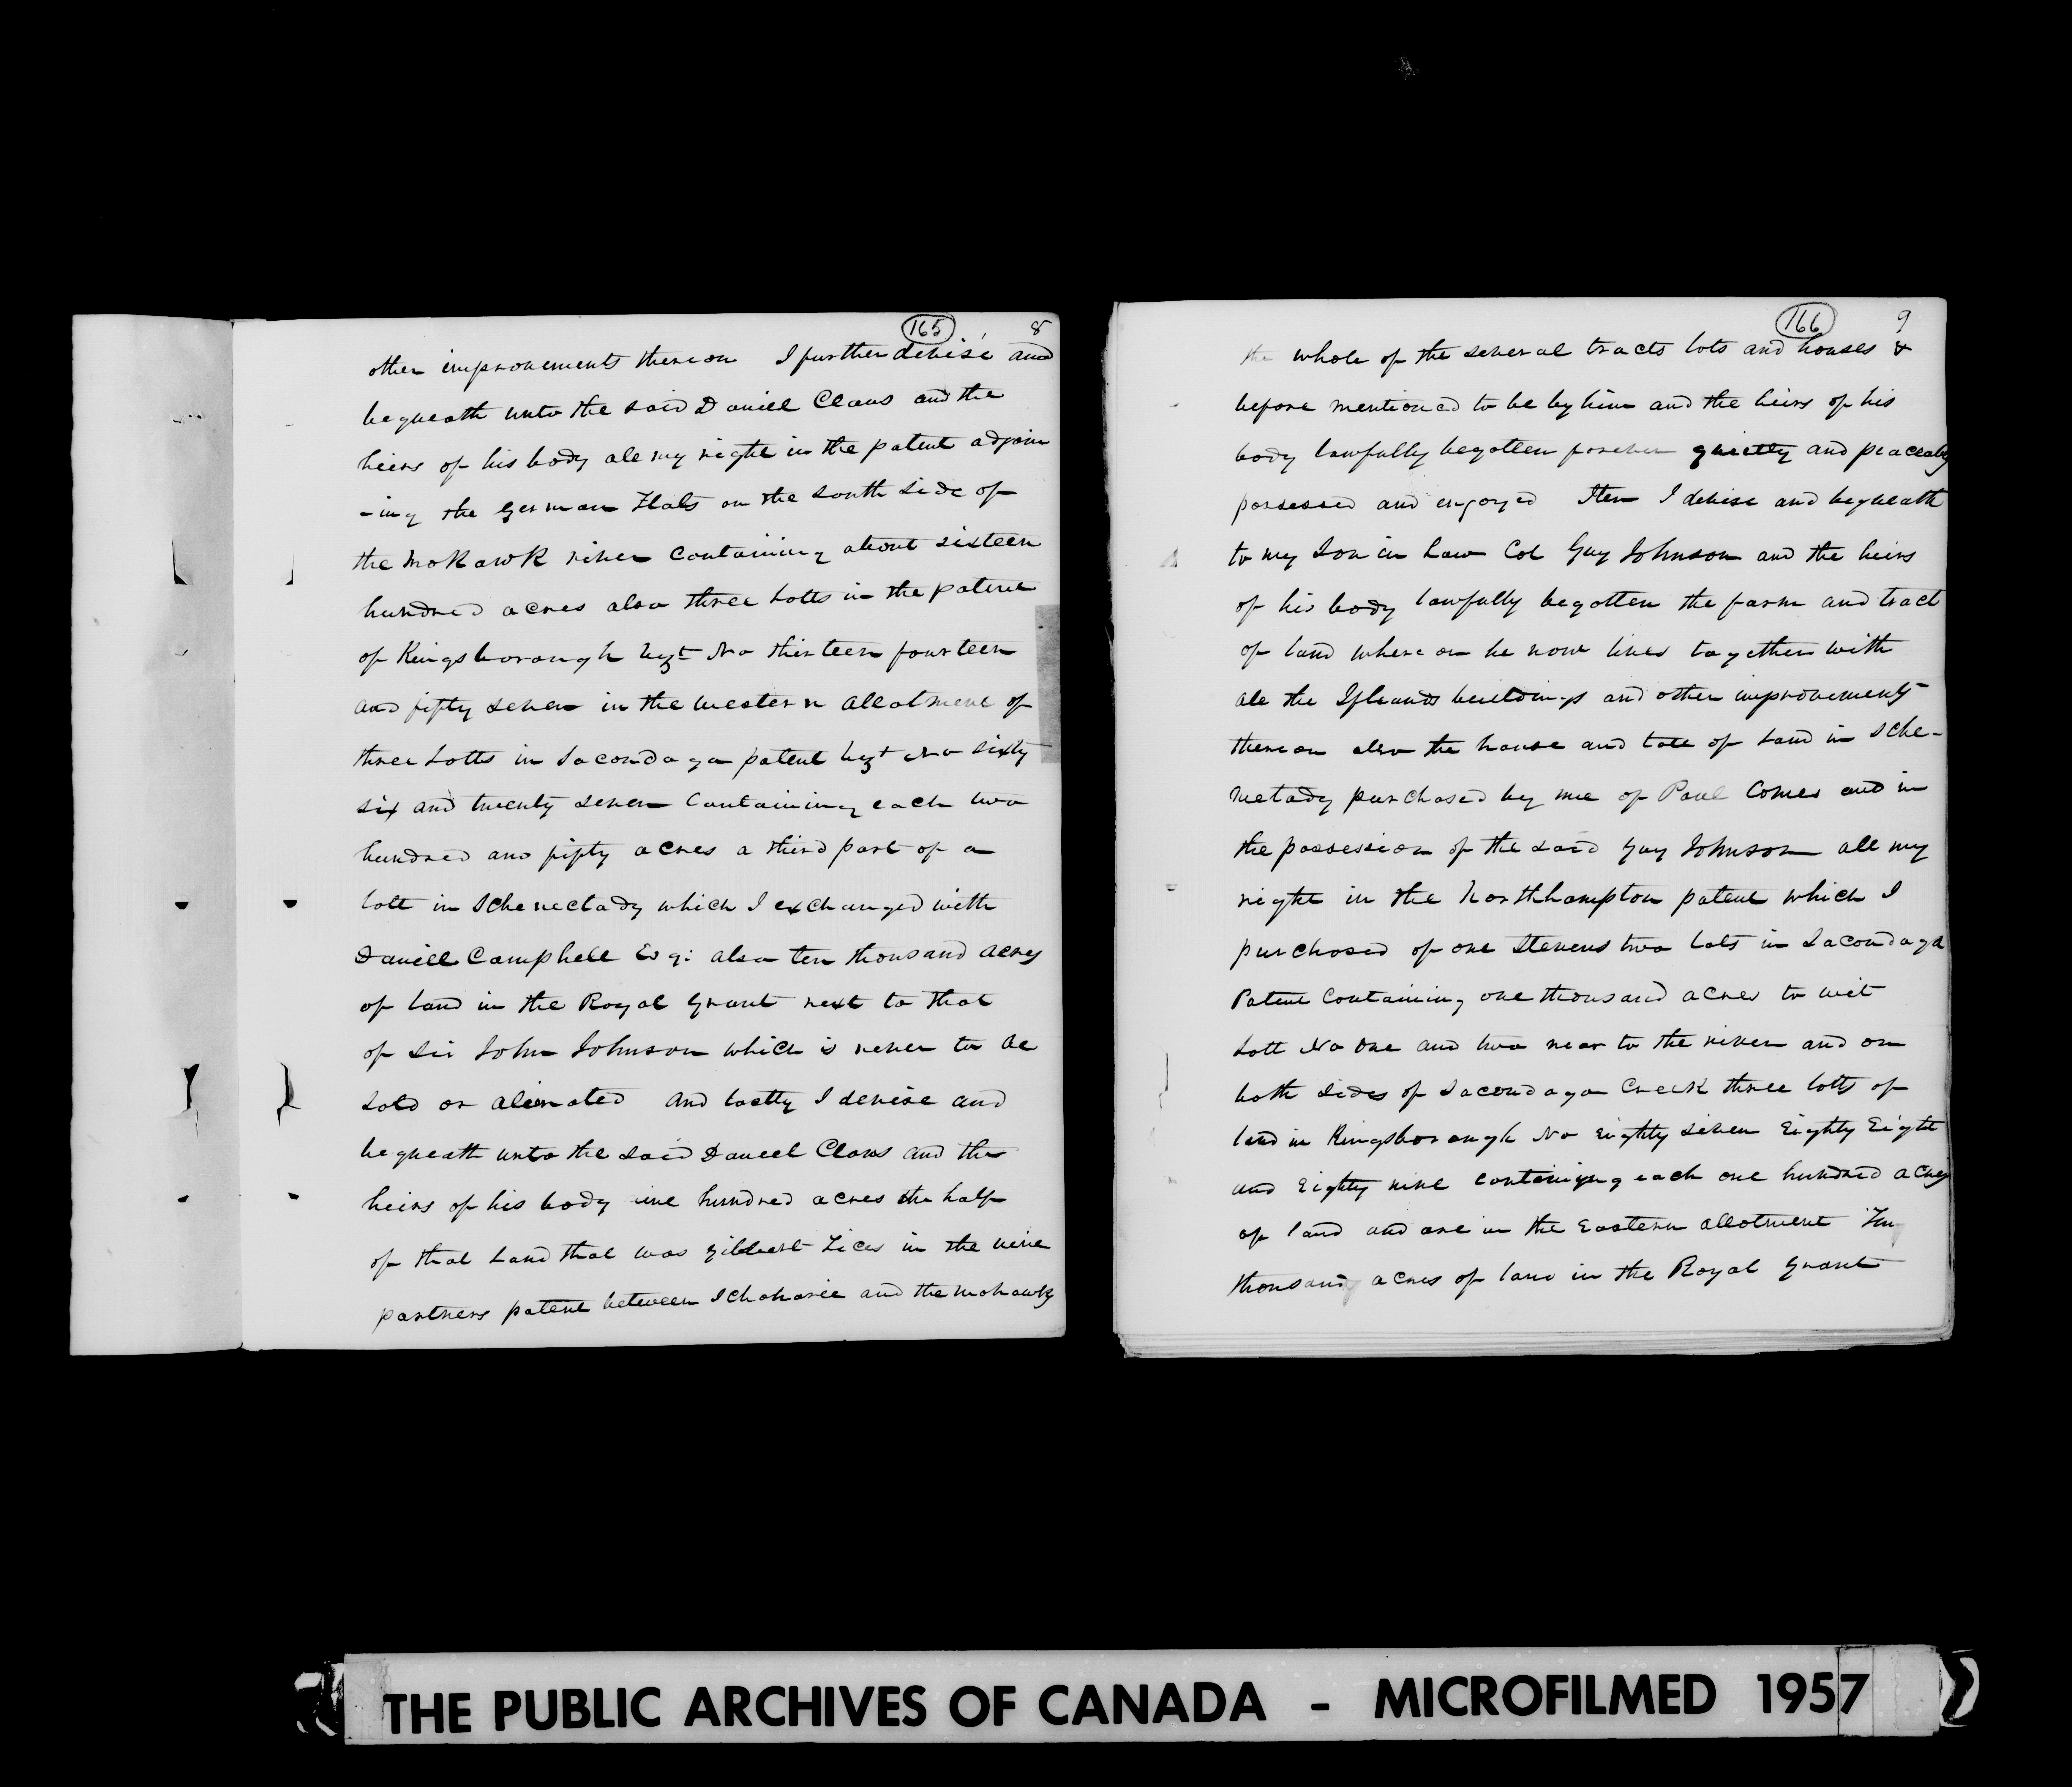 165 8
other improvements thereon I further devise and
bequeath unto the said Daniel Claus and the
heirs of his body all my right in the patent adjoin
-ing the German Flats on the South Side of
the Mohawk river Containing about sixteen
hundred acres also three Lotts in the patent
of Kingsborough vizt No thirteen fourteen
and fifty seven in the western allotment of
three Lotts in Sacondaga patent vizt No sixty
six and twenty seven Containing each two
hundred and fifty acres a third part of a
lott in Schenectady which I exchanged with
Daniell Campbell Esq: also ten thousand acres
of land in the Royal Grant next to that
of Sir John Johnson which is never to be
sold or alienated And lastly I devise and
bequeath unto the said Daniel Claus and the
heirs of his body hundred acres the half
of that Land that was Gilbert Tices in the nine
partners patent between Schoharie and the Mohawks
166 9
the whole of the several tracts lots and houses &
before mentioned to be by him and the heirs of his
body lawfully begotten forever quietly and peaceably
possessed and enjoyed Item I devise and bequeath
to my Son in Law Col Guy Johnson and the heirs
of his body lawfully begotten the farm and tract
of land where on he now lives together with
all the Islands buildings and other improvements
thereon also the house and lott of Land in Sche-
nectady purchased by me of Paul Comes and in
the possession of the said Guy Johnson all my
right in the Northhampton patent which I
purchased of one Stevens two lots in Sacondaga
Patent Containing one thousand acres to wit
Lott No one and two near to the river and on
both Sides of Sacondaga Creek three lotts of
land in Kingsborough No Eighty Seven Eighty Eight
and Eighty nine containing each one hundred acres
of land and are in the Eastern allotment Ten
thousand acres of land in the Royal Grant
THE PUBLIC ARCHIVES OF CANADA - MICROFILMED 1957